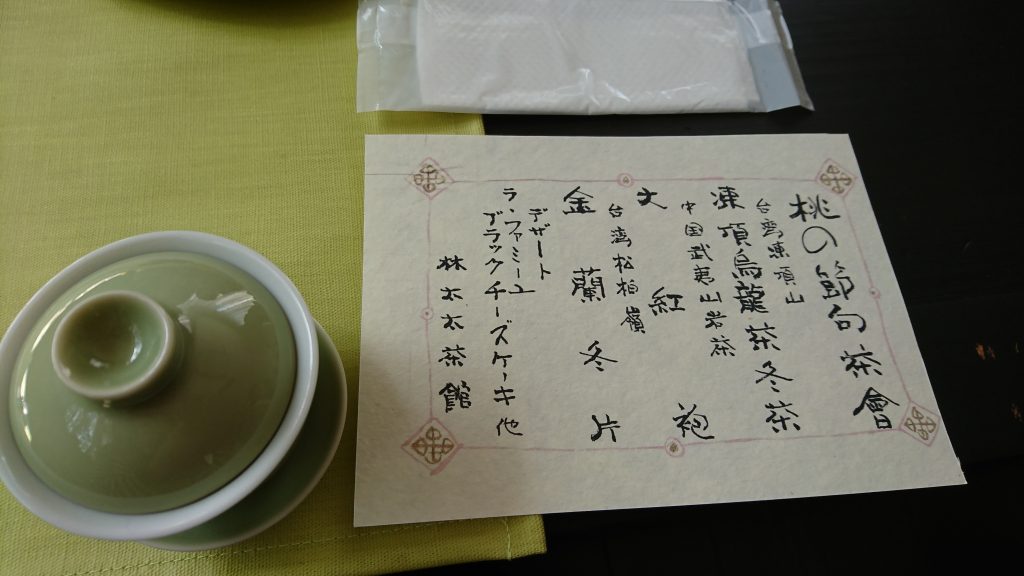 桃の節句茶會
台湾凍頂山
凍頂烏龍茶冬茶
中国武夷山岩茶
大紅袍
台湾松柏嶺
金蘭冬片
デザート
ラ・ファミーユ
ブラックチーズケーキ他
林太太茶館